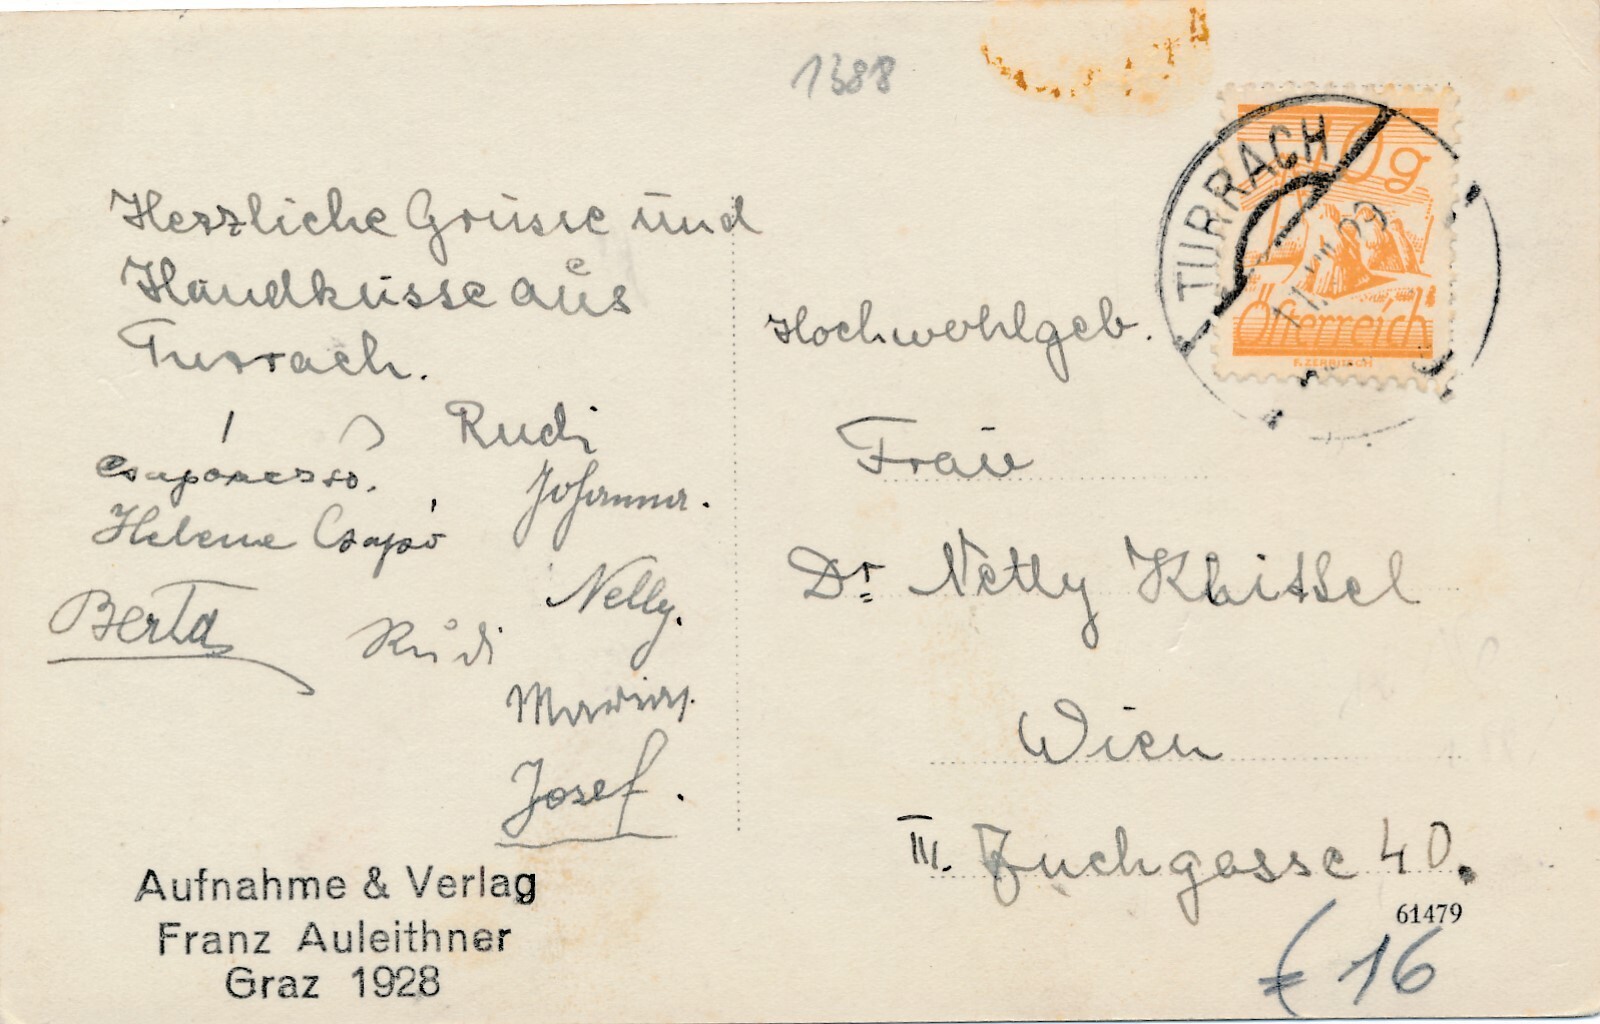 1388
Herzliche Grüsse und
Handküsse aus
Turrach.
Rudi
Johanna.
Helene Csapó
Nelly.
Berta
Rudi
Josef.
Aufnahme & Verlag
Franz Auleithner
Graz 1928
TURRACH
10g
Österreich
Hochwohlgeb.
Frau
Dr Netty
Wien
III. 40.
61479
€ 16